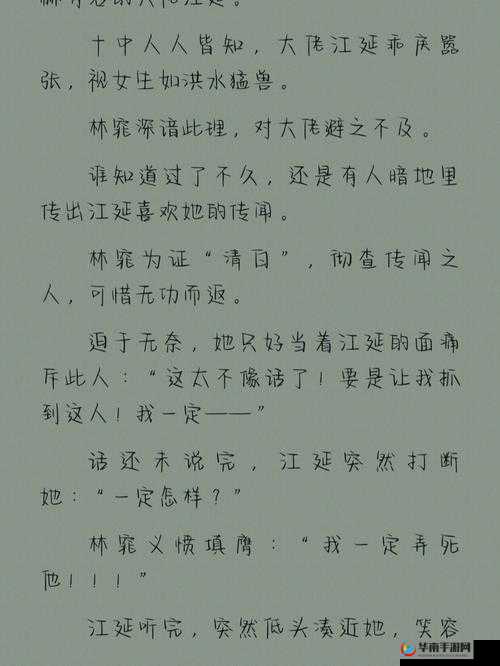 十中人人皆知，大佬江延乖戾嚣
张，视女生如洪水猛兽。
林窕深谙此理，对大佬避之不及。
谁知道过了不久，还是有人暗地里
传出江延喜欢她的传闻。
林窕为证“清白”，彻查传闻之
人，可惜无功而返。
迫于无奈，她只好当着江延的面痛
斥此人：“这太不像话了！要是让我抓
到这人！我一定——”
话还未说完，江延突然打断
她：“一定怎样？”
林窕义愤填膺：“我一定弄死
他！！！”
江延听完，突然低头凑近她，笑容
华南手游网